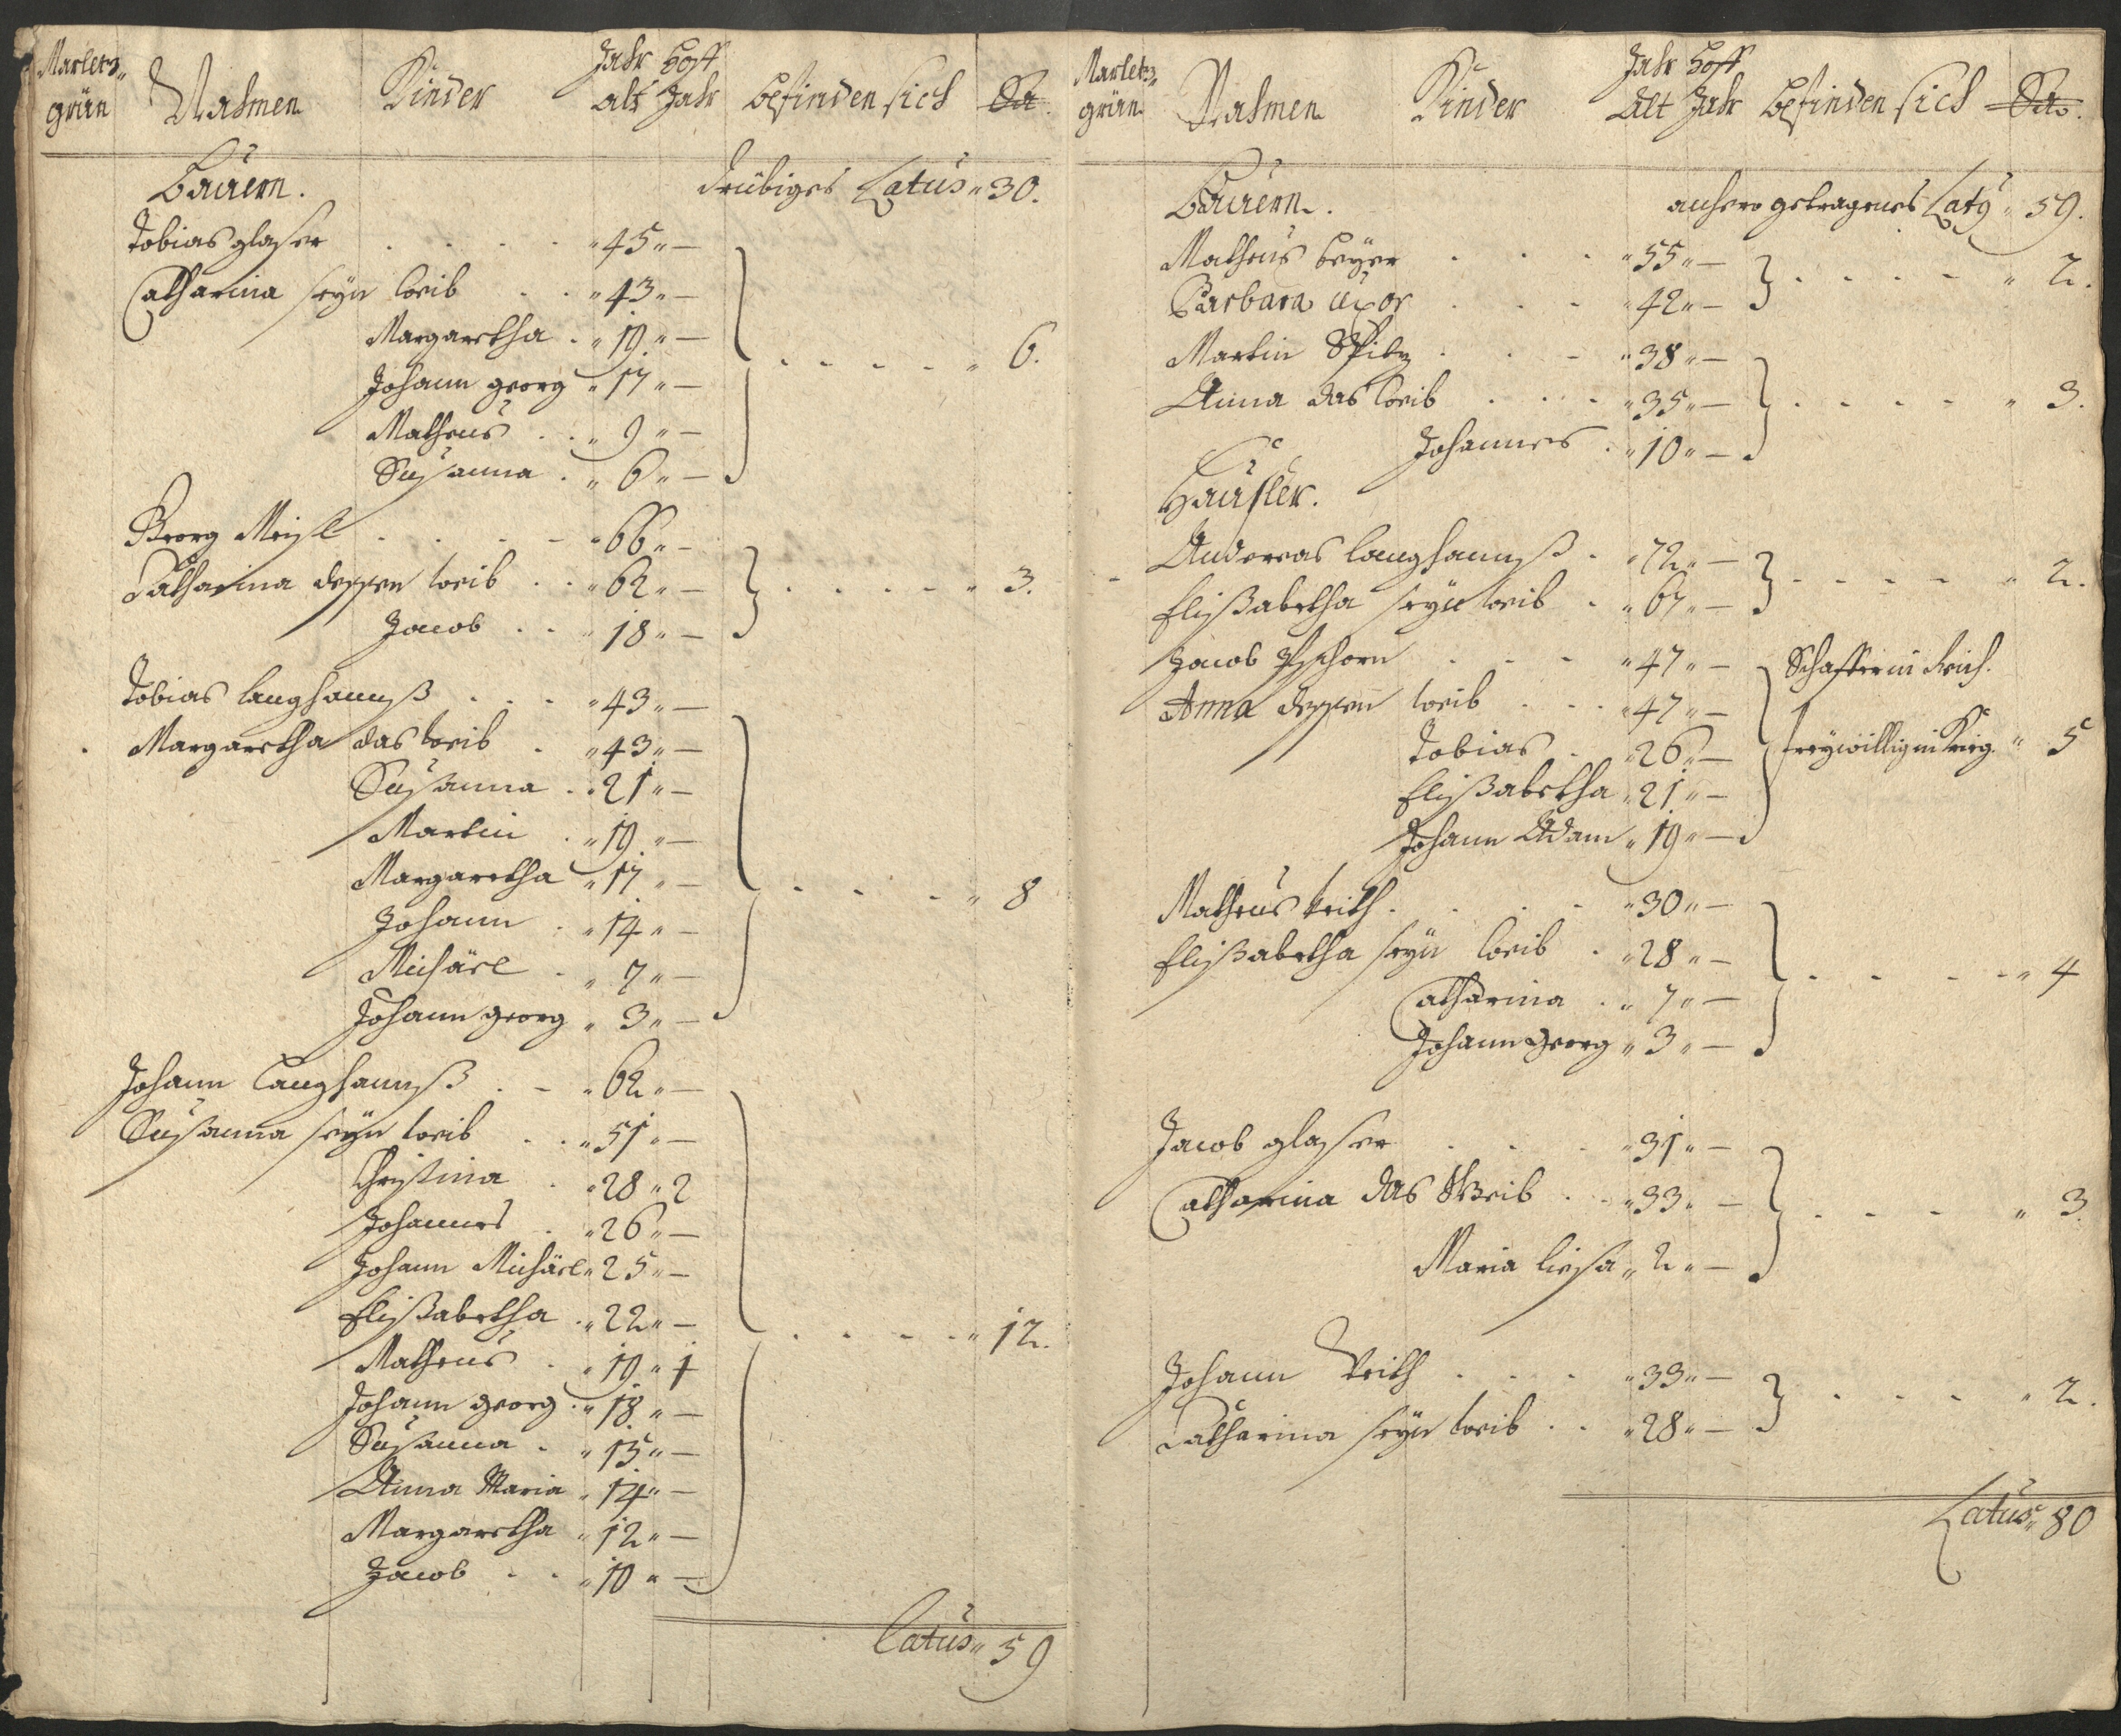 Marletz„ grün Nahmen Kinder Jahr alt Hoff Jahr befinden sich Sa.
Bauern. drübiges Latus „ 30.
Tobias glaser . . . . „ 45 „ —
Catharina seyn weib . . „ 43 „ —
Margaretha . „ 19 „ —
Johann georg „ 17 „ — . . . . „ 6.
Matheus . . „ 9 „ —
Susanna . „ 6 „ —
Georg Meisl . . . . „ 66 „ —
Catharina dessen weib . . „ 62 „ — . . . . „ 3.
Jacob . . „ 18 „ —
Tobias langhannß . . . „ 43 „ —
Margaretha das weib . „ 43 „ —
Susanna . „ 21 „ —
Martin . „ 19 „ —
Margaretha „ 17 „ — . . . . „ 8
Johann . „ 14 „ —
Michäel . „ 7 „ —
Johann georg „ 3 „ —
Johann langhannß . . „ 62 „ —
Susanna seyn weib . . „ 51 „ —
Christina . „ 28 „ 2
Johannes . „ 26 „ —
Johann Michäel „ 25 „ —
Elißabetha . „ 22 „ — . . . . „ 12.
Matheus . „ 19 „ 1
Johann georg . „ 18 „ —
Susanna . „ 15 „ —
Anna Maria „ 14 „ —
Margaretha „ 12 „ —
Jacob . . „ 10 „ —
Latus „ 59
Marletz„ grün Nahmen Kinder Jahr Alt Hoff Jahr befinden sich Sa.
Bauern. anhero getragenes Latus „ 59.
Matheus beyer . . . „ 55 „ —
Barbara uxor . . . „ 42 „ — . . . . „ 2.
Martin Spitz . . . „ 38 „ —
Anna das weib . . . „ 35 „ — . . . . „ 3.
Johannes . „ 10 „ —
Häusler.
Andereas langhannß . „ 72 „ —
Elißabetha seyn weib . „ 67 „ — . . . . „ 2.
Jacob Pschorn . . . „ 47 „ — Schaffer in
Anna dessen weib . . . „ 47 „ —
Tobias . „ 26 „ — freywillig in Krieg. „ 5
Elißabetha „ 21 „ —
Johann Adam „ 19 „ —
Matheus Veith . . . . „ 30 „ —
Elißabetha seyn weib . „ 28 „ — . . . . „ 4
Catharina . „ 7 „ —
Johann Georg „ 3 „ —
Jacob glaser . . . „ 31 „ —
Catharina das Weib . . „ 33 „ — . . . „ 3.
Maria liesa „ 2 „ —
Johann Veith . . . „ 33 „ —
Catharina seyn weib . . „ 28 „ — . . . . „ 2.
Latus „ 80